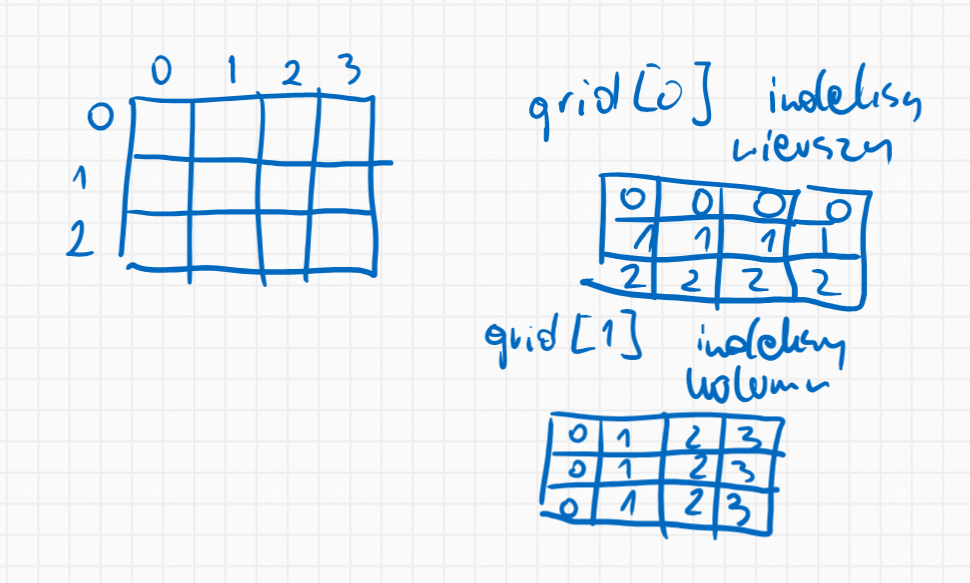 0 1 2 3
0
1
2
grid[0] indeksy
wierszy
0 0 0 0
1 1 1 1
2 2 2 2
grid[1] indeksy
kolumn
0 1 2 3
0 1 2 3
0 1 2 3